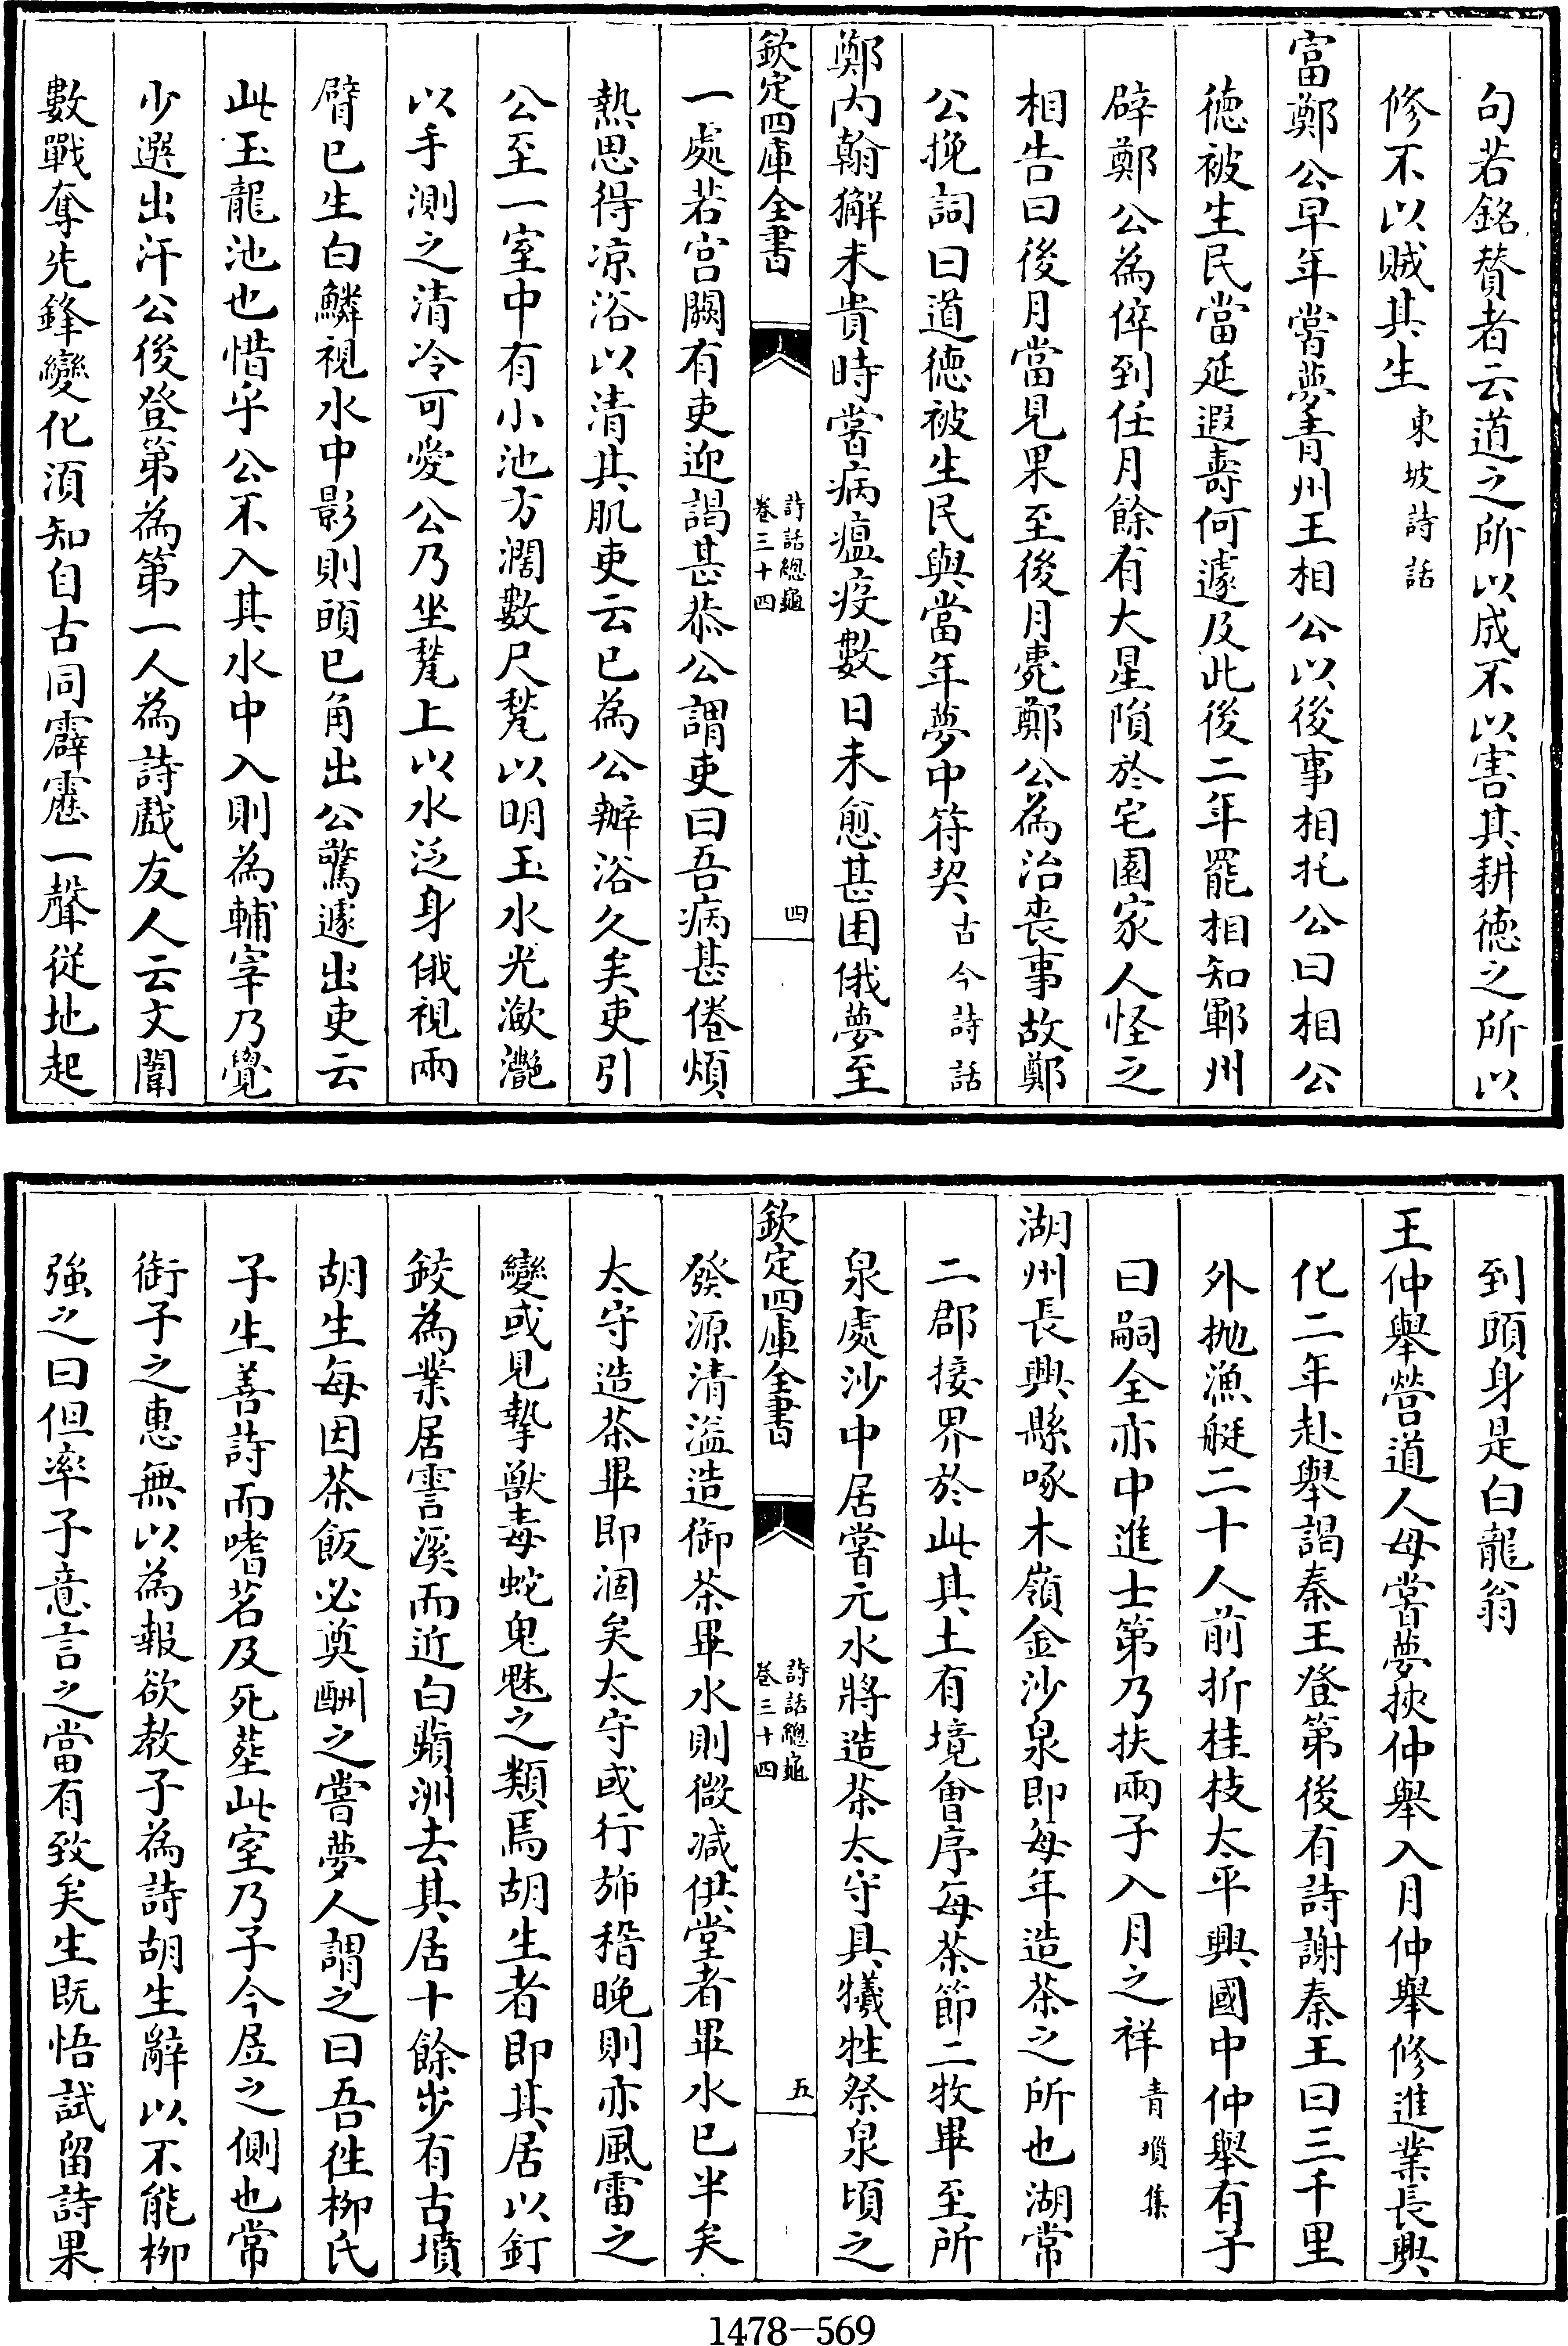 句若銘賛者云道之所以成不以害其耕徳之所以
修不以賊其生東坡詩話
富鄭公早年嘗夢青州王相公以後事相托公曰相公
徳被生民當延遐壽何遽及此後二年罷相知鄆州
辟鄭公為倅到任月餘有大星隕於宅園家人怪之
相告曰後月當見果至後月薨鄭公為治喪事故鄭
公挽詞曰道徳被生民與當年夢中符契古今詩話
鄭内翰獬未貴時嘗病瘟疫數日未愈甚困俄夢至
欽定四庫全書
詩話總龜
卷三十四
四
一處若宫闕有吏迎謁甚恭公謂吏曰吾病甚倦煩
熱思得凉浴以清其肌吏云已為公辦浴久矣吏引
公至一室中有小池方濶數尺甃以明玉水光瀲灧
以手測之清冷可愛公乃坐甃上以水泛身俄視兩
臂已生白鱗視水中影則頭已角出公驚遽出吏云
此玉龍池也惜乎公不入其水中入則為輔宰乃覺
少選出汗公後登第為第一人為詩戲友人云文闈
數戰奪先鋒變化湏知自古同霹靂一聲從地起
到頭身是白龍翁
王仲舉營道人母嘗夢挾仲舉入月仲舉修進業長興
化二年赴舉謁秦王登第後有詩謝秦王曰三千里
外抛漁艇二十人前折桂枝太平興國中仲舉有子
曰嗣全亦中進士第乃扶兩子入月之祥青瑣集
湖州長興縣啄木嶺金沙泉即每年造茶之所也湖常
二郡接界於此其土有境會亭每茶節二牧畢至所
泉處沙中居嘗元水將造茶太守具犧牲祭泉頃之
欽定四庫全書
詩話總龜
卷三十四
五
發源清溢造御茶畢水則微減供堂者畢水已半矣
太守造茶畢即涸矣太守或行斾稽晚則亦風雷之
變或見摯獸毒蛇鬼魅之類焉胡生者即其居以釘
鉸為業居霅溪而近白蘋洲去其居十餘步有古墳
胡生每因茶飯必奠酬之嘗夢人謂之曰吾徃柳氏
子生善詩而嗜茗及死塟此室乃子今居之側也常
銜子之惠無以為報欲教子為詩胡生辭以不能栁
強之曰但率子意言之當有致矣生既悟試留詩果
1478－569